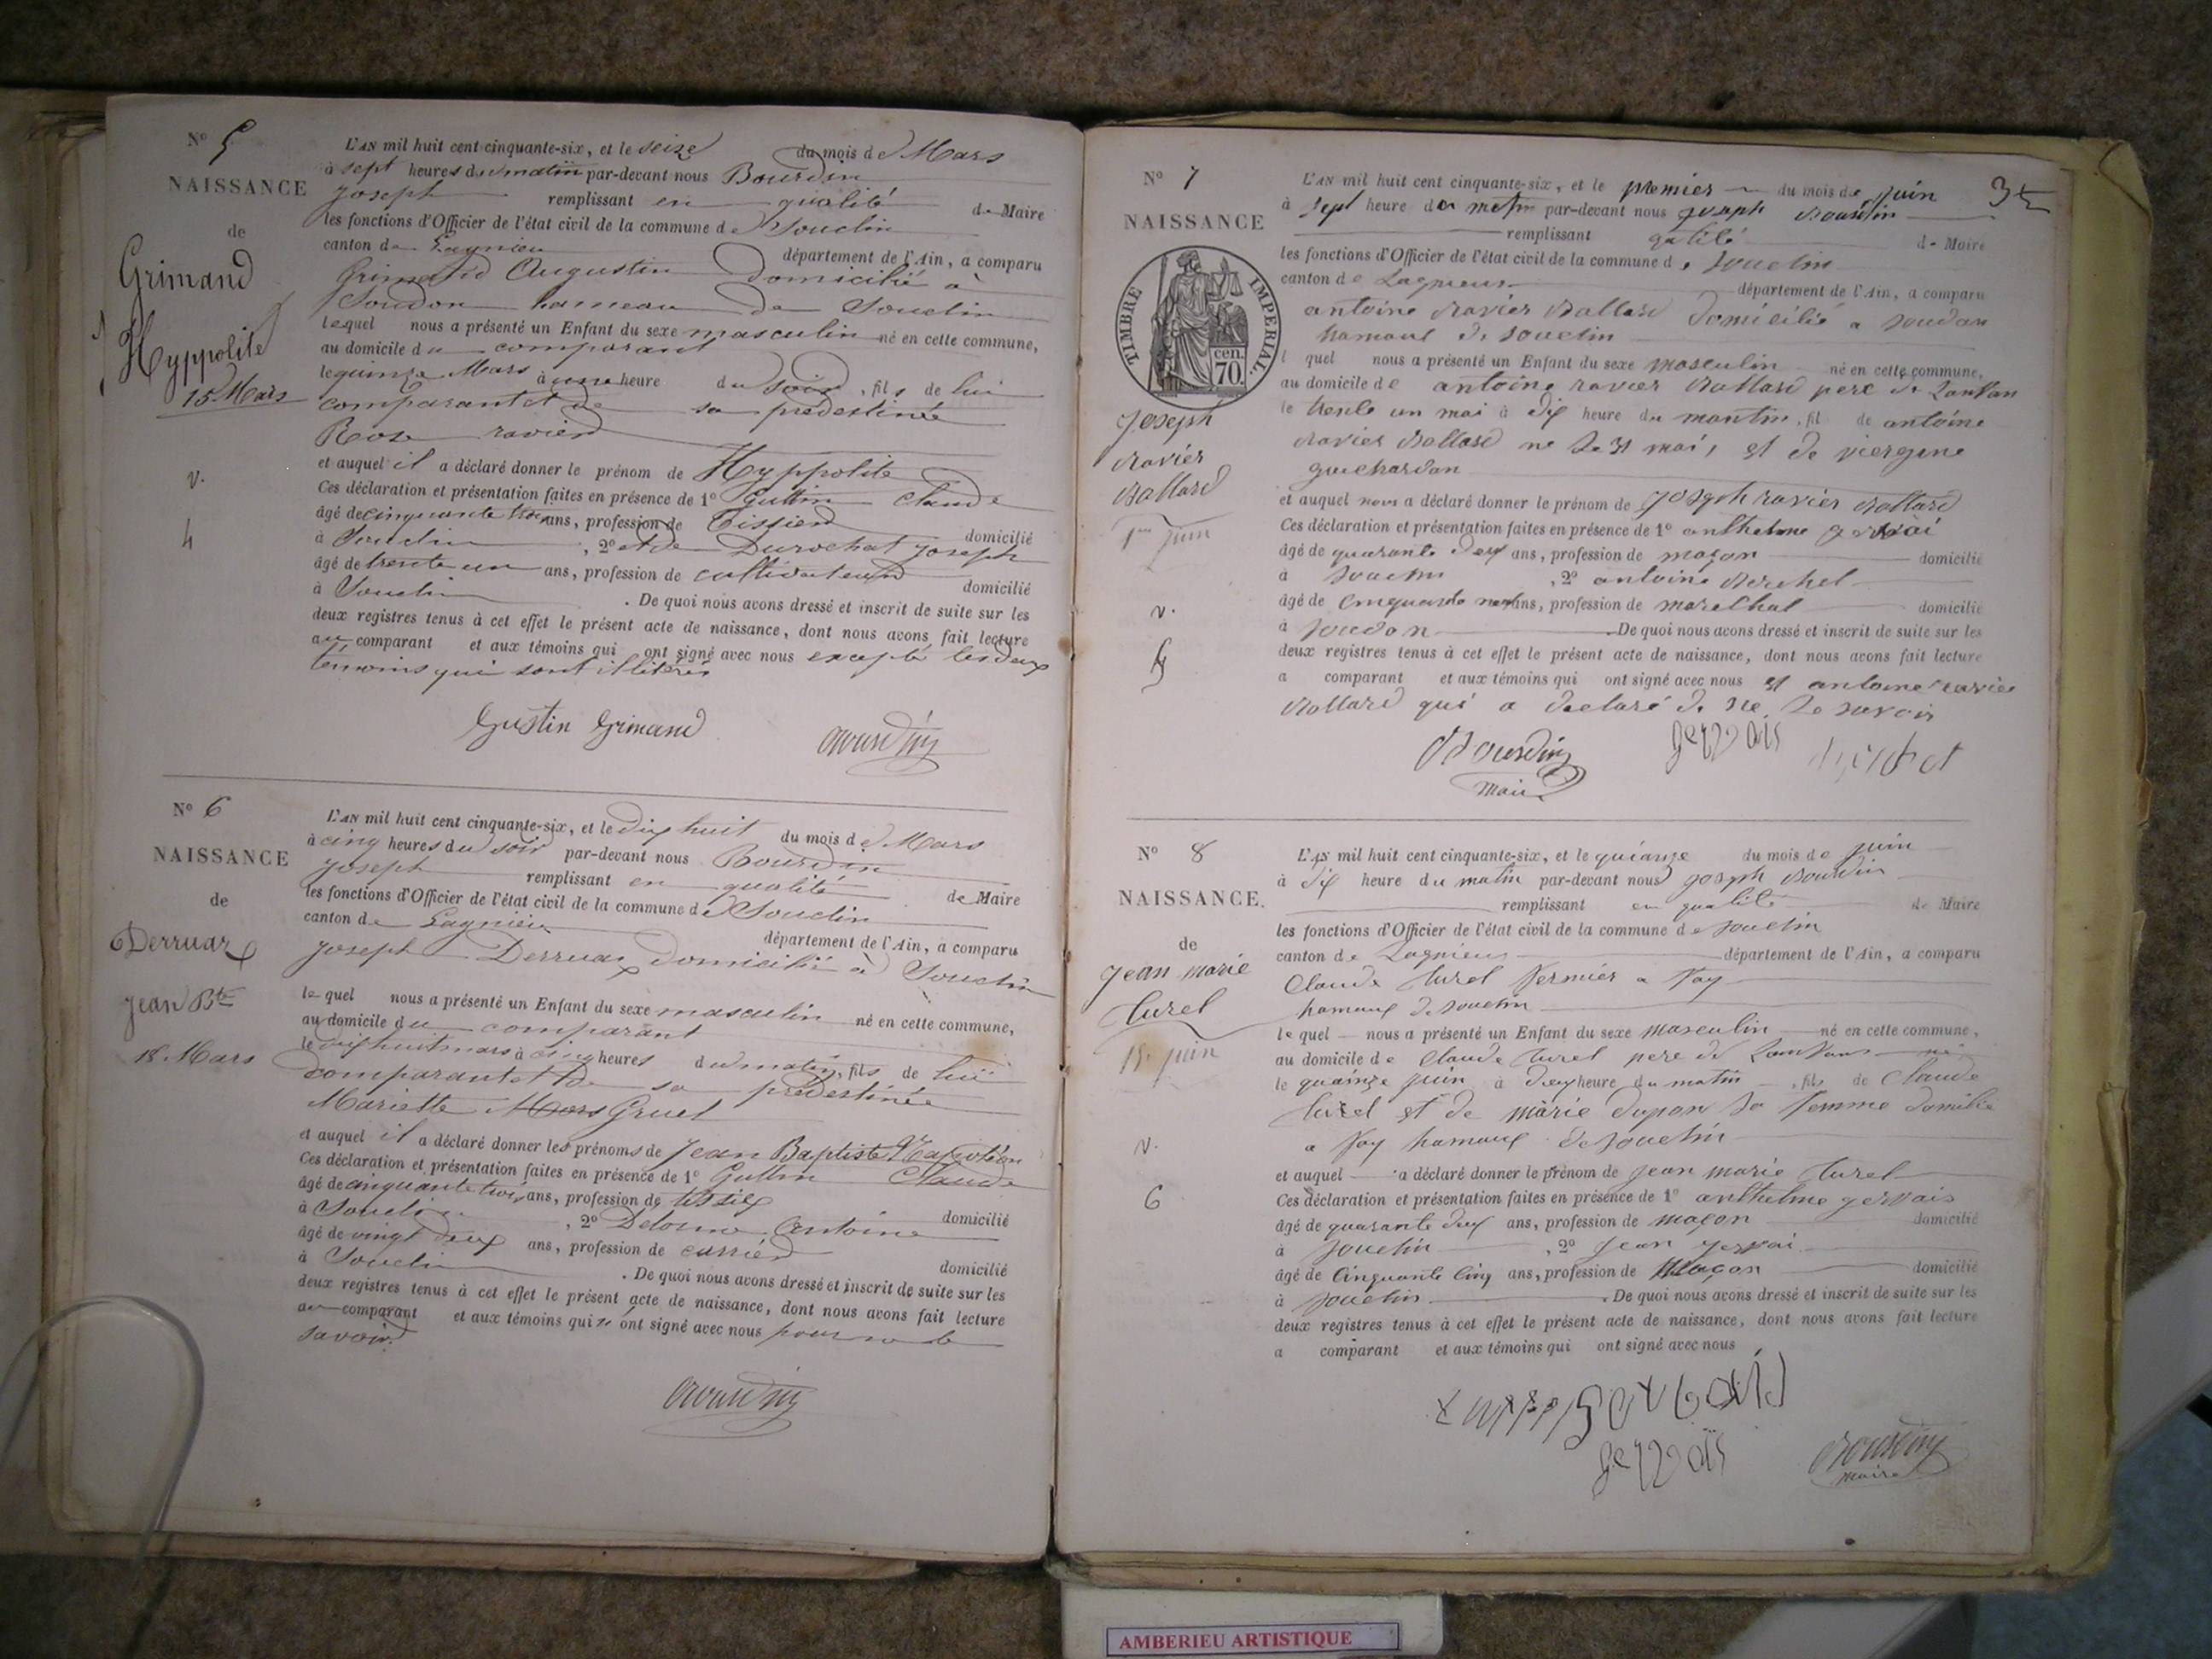 N° 5
NAISSANCE
de
Grimand
Hyppolite
15 Mars
v.
4
L'AN mil huit cent cinquante-six, et le seize du mois de Mars
à sept heures du matin par-devant nous Bourdin
Joseph remplissant en qualité de Maire
les fonctions d'Officier de l'état civil de la commune de Souclin
canton de Lagnieu département de l'Ain, a comparu
Grimand Augustin domicilié à
Soudon hameau de Souclin
lequel nous a présenté un Enfant du sexe masculin né en cette commune,
au domicile du comparant
le quinze Mars à une heure du soir, fils de lui
comparant et de sa prédestinée
Rose ravier
et auquel il a déclaré donner le prénom de Hyppolite
Ces déclaration et présentation faites en présence de 1° Guttin Claude
âgé de cinquante trois ans, profession de Tissier domicilié
à Souclin, 2° et de Durochat Joseph
âgé de trente un ans, profession de cultivateur domicilié
à Souclin. De quoi nous avons dressé et inscrit de suite sur les
deux registres tenus à cet effet le présent acte de naissance, dont nous avons fait lecture
au comparant et aux témoins qui ont signé avec nous excepté les deux
témoins qui sont illiterés
Gustin Grimand Bourdin
N° 6
NAISSANCE
de
Derruaz
Jean Bte
18 Mars
L'AN mil huit cent cinquante-six, et le dix huit du mois de Mars
à cinq heures du soir par-devant nous Bourdin
Joseph remplissant en qualité de Maire
les fonctions d'Officier de l'état civil de la commune de Souclin
canton de Lagnieu département de l'Ain, a comparu
Joseph Derruaz domicilié à Souclin
le quel nous a présenté un Enfant du sexe masculin né en cette commune,
au domicile du comparant
le dix huit mars à cinq heures du matin, fils de lui
comparant et de sa prédestinée
Mariette Mars Gruel
et auquel il a déclaré donner les prénoms de Jean Baptiste Napoléon
Ces déclaration et présentation faites en présence de 1° Guttin Claude
âgé de cinquante trois ans, profession de tissier domicilié
à Souclin, 2° Delorme Antoine
âgé de vingt deux ans, profession de carrier domicilié
à Souclin. De quoi nous avons dressé et inscrit de suite sur les
deux registres tenus à cet effet le présent acte de naissance, dont nous avons fait lecture
au comparant et aux témoins qui n'ont signé avec nous pour ne le
savoir.
Bourdin
35
N° 7
NAISSANCE
TIMBRE IMPERIAL
70 cen.
Joseph
Ravier
Ballard
1er juin
v.
5
L'AN mil huit cent cinquante-six, et le premier du mois de juin
à sept heure du matin par-devant nous joseph Bourdin
remplissant qalité de Maire
les fonctions d'Officier de l'état civil de la commune de souclin
canton de Lagnieux département de l'Ain, a comparu
antoine Ravier Ballard domicilié a soudon
hamaux de souclin
l quel nous a présenté un Enfant du sexe masculin né en cette commune,
au domicile de antoine ravier Ballard pere de Lanfan
le trente un mai à dix heure du mantin, fil de antoine
Ravier Ballard ne le 31 mai, et de viergine
guichardon
et auquel nous a déclaré donner le prénom de joseph ravier Ballard
Ces déclaration et présentation faites en présence de 1° anthelme gervai
âgé de quarante deux ans, profession de maçon domicilié
à souclin, 2° antoine Berchet
âgé de cinquante neuf ans, profession de marechal domicilié
à soudon. De quoi nous avons dressé et inscrit de suite sur les
deux registres tenus à cet effet le présent acte de naissance, dont nous avons fait lecture
a comparant et aux témoins qui ont signé avec nous et antoine ravier
Ballard qui a declaré de ne le savoir
Bourdin gervais
Maire
N° 8
NAISSANCE.
de
Jean marie
turel
15 juin
v.
6
L'AN mil huit cent cinquante-six, et le quianze du mois de juin
à dix heure du matin par-devant nous joseph Bourdin
remplissant en qualité de Maire
les fonctions d'Officier de l'état civil de la commune de souclin
canton de Lagnieux département de l'Ain, a comparu
Claude turel fermier a Fay
hamaux de souclin
le quel nous a présenté un Enfant du sexe masculin né en cette commune,
au domicile de Claude turel pere de Lanfans né
le quainze juin à deux heure du matin, fils de Claude
turel et de marie dupon sa femme domilie
a Fay hamaux de souclin
et auquel a déclaré donner le prénom de jean marie turel
Ces déclaration et présentation faites en présence de 1° anthelme gervais
âgé de quarante deux ans, profession de maçon domicilié
à souclin, 2° jean gervai
âgé de cinquante cinq ans, profession de Maçon domicilié
à souclin. De quoi nous avons dressé et inscrit de suite sur les
deux registres tenus à cet effet le présent acte de naissance, dont nous avons fait lecture
a comparant et aux témoins qui ont signé avec nous
gervais Bourdin
maire
AMBERIEU ARTISTIQUE